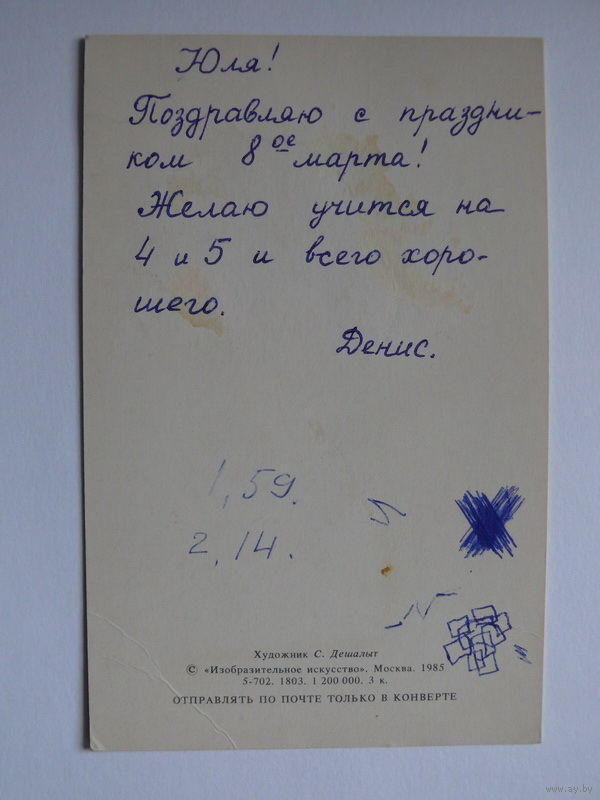 Юля!
Поздравляю с праздни-
ком 8 ое марта!
Желаю учится на
4 и 5 и всего хоро-
шего.
Денис.
1,59.
2,14.
Художник С. Дешалыт
© «Изобразительное искусство». Москва. 1985
5-702. 1803. 1 200 000. 3 к.
ОТПРАВЛЯТЬ ПО ПОЧТЕ ТОЛЬКО В КОНВЕРТЕ
www.ay.by